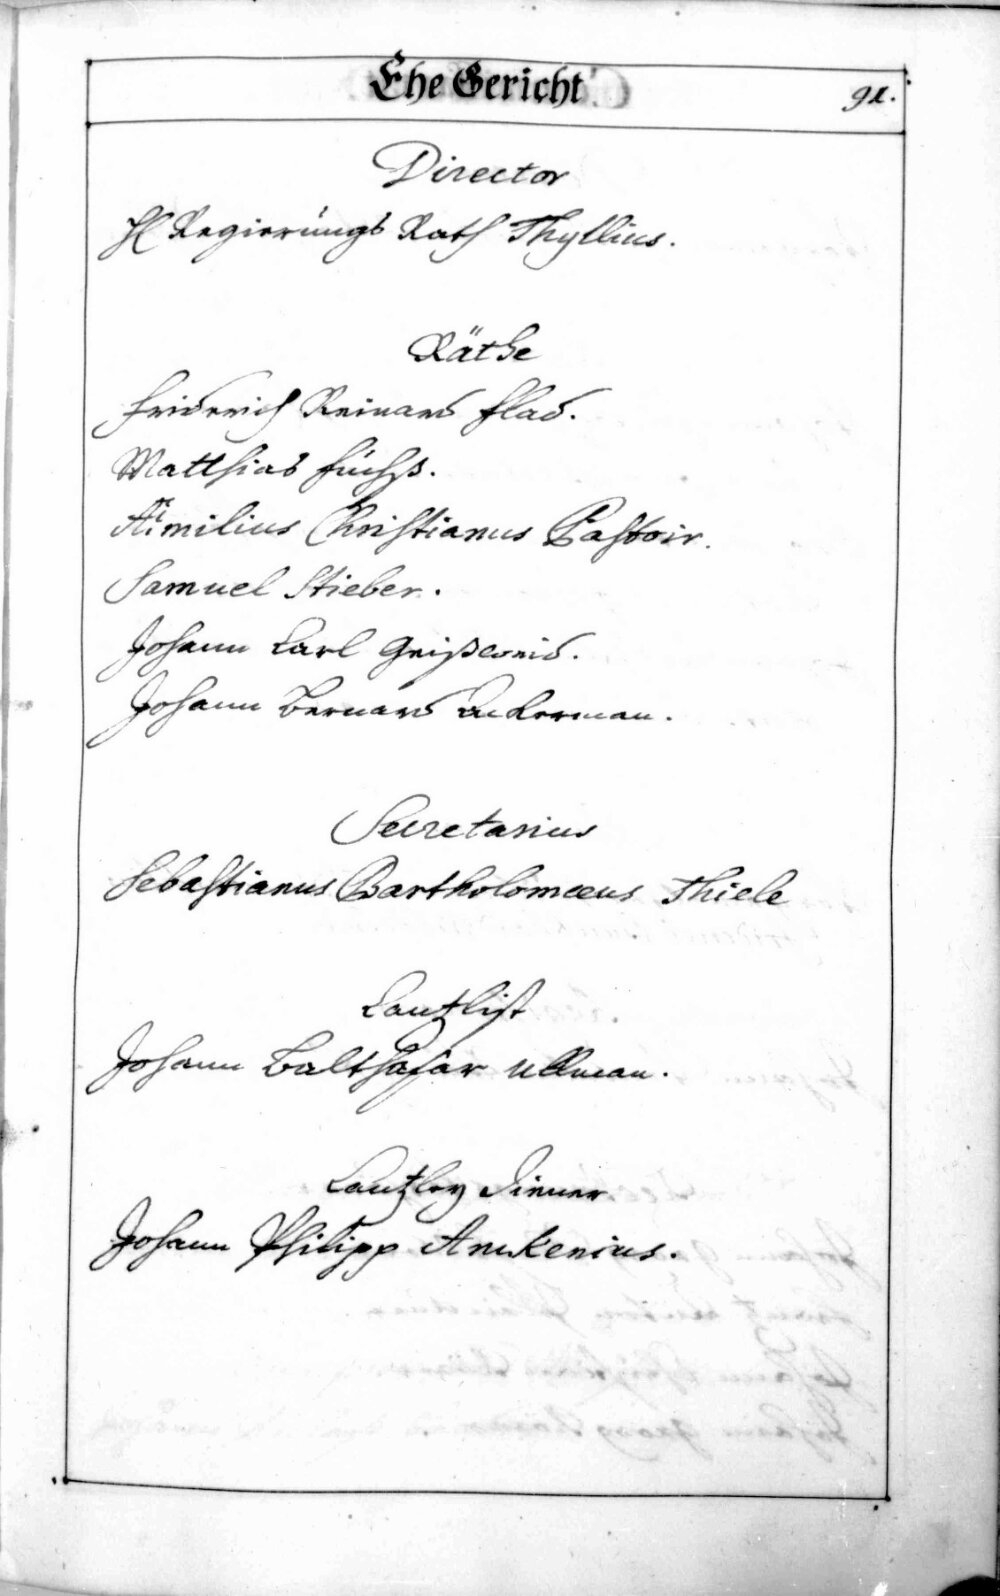 Ehe Gericht
91.
Director
H Regierungs Rath Thyllius.
Räthe
Friderich Reinard Flad.
Matthias Fuchß.
Æmilius Christianus Pastoir.
Samuel Stieber.
Johann Carl Geißweid.
Johann Bernard Ackerman.
Secretarius
Sebastianus Bartholomæus Thiele
Cantzlist
Johann Balthasar Ullman.
Cantzley Diener
Johann Philipp Amkenius.